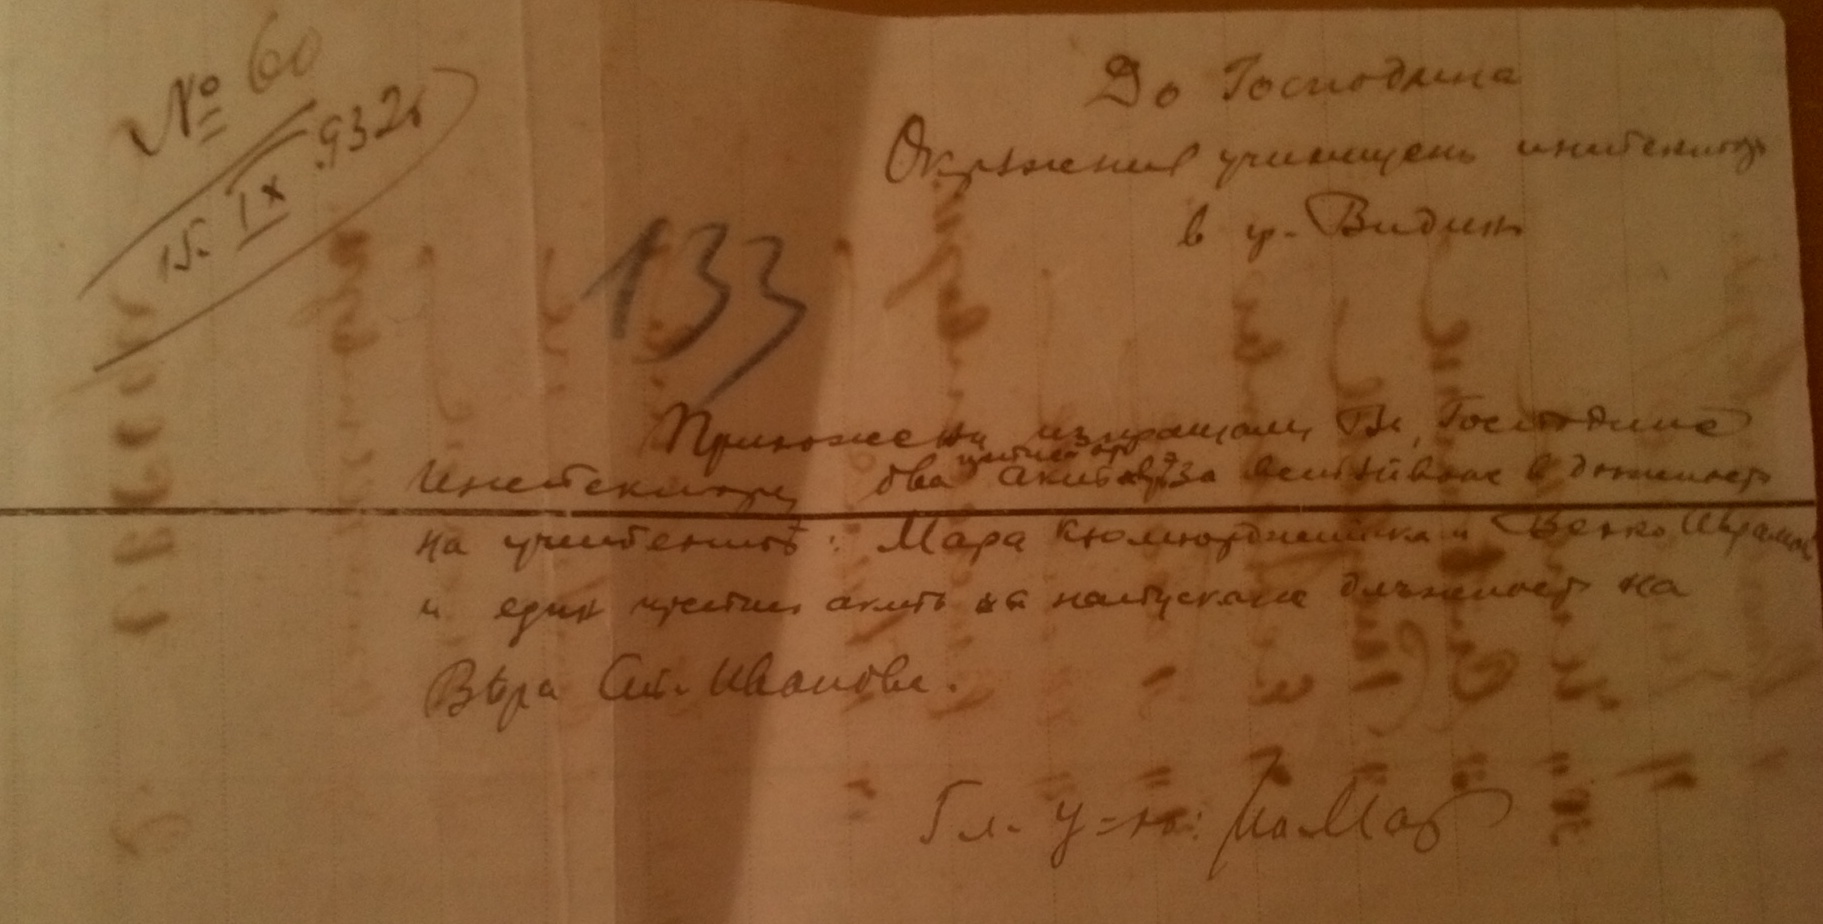 № 60
15. IX .932г
До Господина
Окръжния училищенъ инспекторъ
в гр. Видинъ
133
Приложени изпращамъ Ви, Господине
Инспекторе два акта за встъпване в длъжность
на учителитѣ: Мара и Венко
и единъ актъ за напускане длъжность на
Вѣра Ст. Иванова.
Гл. у-лъ: